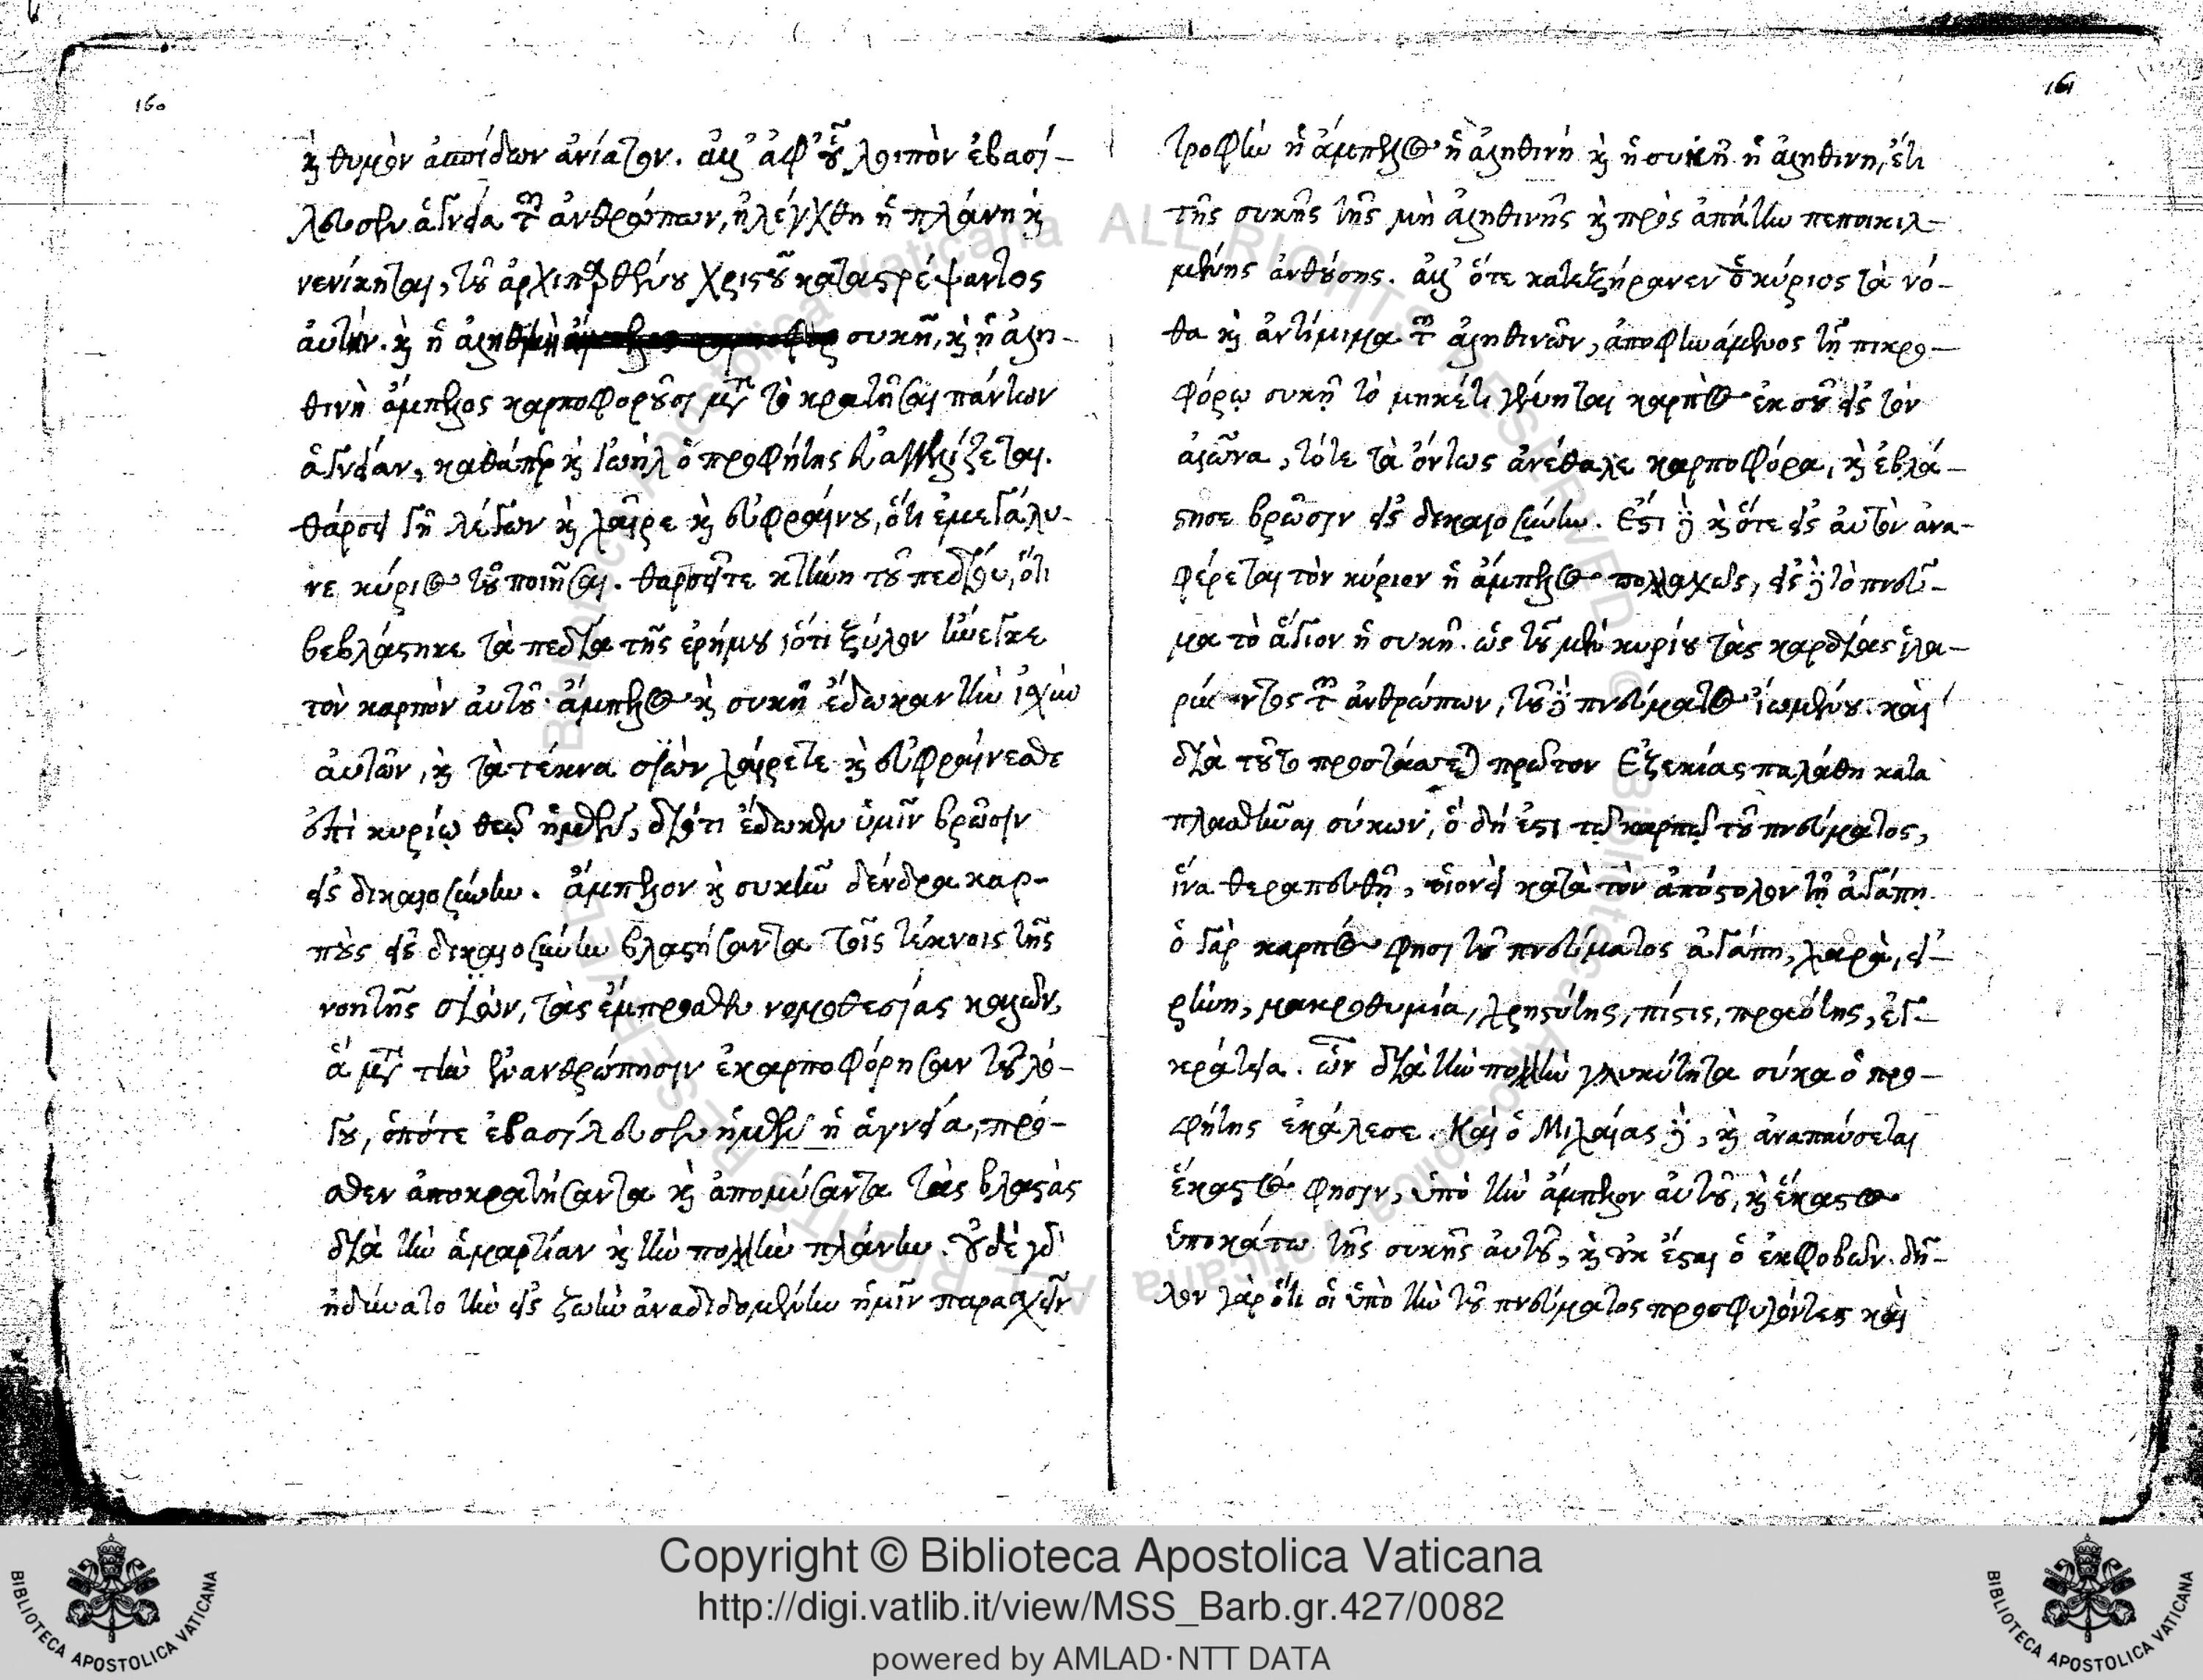 160
καὶ θυμὸν ἀσπίδων ἀνίατον. ἀλλ' ἀφ' οὗ λοιπὸν ἐβασί-
λευσεν ἁγνεία τῶν ἀνθρώπων, ἠλέγχθη ἡ πλάνη καὶ
νενίκηται, τοῦ ἀρχιπαρθένου χριστοῦ καταστρέψαντος
αὐτήν. καὶ ἡ ἀληθινὴ συκῆ, καὶ ἡ ἀλη-
θινὴ ἄμπελος καρποφοροῦσι μετὰ τὸ κρατῆσαι πάντων
ἁγνείαν, καθάπερ καὶ Ἰωὴλ ὁ προφήτης εὐαγγελίζεται.
θάρσει γῆ λέγων καὶ χαῖρε καὶ εὐφραίνου, ὅτι ἐμεγάλυ-
νε κύριος τοῦ ποιῆσαι. θαρσεῖτε κτήνη τοῦ πεδίου, ὅτι
βεβλάστηκε τὰ πεδία τῆς ἐρήμου, ὅτι ξύλον ἤνεγκε
τὸν καρπὸν αὐτοῦ· ἄμπελος καὶ συκῆ ἔδωκαν τὴν ἰσχὺν
αὐτῶν, καὶ τὰ τέκνα σιὼν χαίρετε καὶ εὐφραίνεσθε
ἐπὶ κυρίῳ θεῷ ἡμῶν, διότι ἔδωκεν ὑμῖν βρῶσιν
εἰς δικαιοσύνην. ἄμπελον καὶ συκῆν δένδρα καρ-
ποὺς εἰς δικαιοσύνην βλαστήσαντα τοῖς τέκνοις τῆς
νοητῆς σιὼν, τὰς ἔμπροσθεν νομοθεσίας καλῶν,
ἃ μετὰ τὴν ἐνανθρώπησιν ἐκαρποφόρησαν τοῦ λό-
γου, ὁπότε ἐβασίλευσεν ἡμῶν ἡ ἁγνεία, πρό-
σθεν ἀποκρατήσαντα καὶ ἀπομύσαντα τὰς βλάστας
διὰ τὴν ἁμαρτίαν καὶ τὴν πολλὴν πλάνην. οὐδὲ γὰρ
ἠδύνατο τὴν εἰς ζωὴν ἀναδιδομένην ἡμῖν παρασχεῖν
161
τροφὴν ἡ ἄμπελος ἡ ἀληθινὴ καὶ ἡ συκῆ ἡ ἀληθινη, ἔτι
τῆς συκῆς τῆς μὴ ἀληθινῆς καὶ πρὸς ἀπάτην πεποικιλ-
μένης ἀνθούσης. ἀλλ' ὅτε κατεξήρανεν ὁ κύριος τὰ νό-
θα καὶ ἀντίμιμα τῶν ἀληθινῶν, ἀποφηνάμενος τῇ πικρο-
φόρῳ συκῇ τὸ μηκέτι γένηται καρπὸς ἐκ σοῦ εἰς τὸν
αἰῶνα, τότε τὰ ὄντως ἀνέθαλε καρποφόρα, καὶ ἐβλά-
στησε βρῶσιν εἰς δικαιοσύνην. Ἔστι δὲ καὶ ὅτε εἰς αὐτὸν ἀνα-
φέρεται τὸν κύριον ἡ ἄμπελος πολλαχῶς, εἰς δὲ τὸ πνεῦ-
μα τὸ ἅγιον ἡ συκῆ. ὡς τοῦ μὲν κυρίου τὰς καρδίας ἱλα-
ρύναντος τῶν ἀνθρώπων, τοῦ δὲ πνεύματος ἰωμένου. καὶ
διὰ τοῦτο προστάσσεται πρῶτον Ἐζεκίας παλάθη κατα
πλασθῆναι σύκων, ὅ δή ἐστι τῷ καρπῷ τοῦ πνεύματος,
ἵνα θεραπευθῇ, οἱονεὶ κατὰ τὸν ἀπόστολον τῇ ἀγάπῃ.
ὁ γὰρ καρπός φησι τοῦ πνεύματος ἀγάπη, χαρὰ, εἰ-
ρήνη, μακροθυμία, χρηστότης, πίστις, πραότης, ἐγ-
κράτεια. ὧν διὰ τὴν πολλὴν γλυκύτητα σύκα ὁ προ-
φήτης ἐκάλεσε. Καὶ ὁ Μιχαίας δὲ, καὶ ἀναπαύσεται
ἕκαστός φησιν, ὑπὸ τὴν ἄμπελον αὐτοῦ, καὶ ἕκαστος
ὑποκάτω τῆς συκῆς αὐτοῦ, καὶ οὐκ ἔσται ὁ ἐκφοβῶν. δῆ-
λον γὰρ ὅτι οἱ ὑπὸ τὴν τοῦ πνεύματος προσφυγόντες καὶ
Copyright © Biblioteca Apostolica Vaticana
http://digi.vatlib.it/view/MSS_Barb.gr.427/0082
powered by AMLAD·NTT DATA
BIBLIOTECA APOSTOLICA VATICANA
BIBLIOTECA APOSTOLICA VATICANA